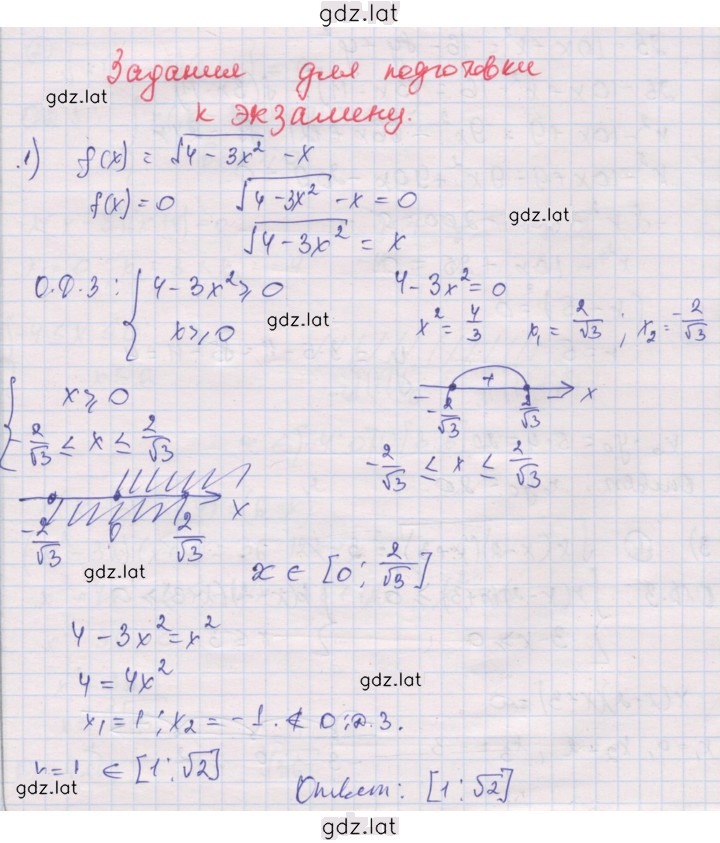 gdz.lat
Задания для подготовки
gdz.lat
к экзамену.
1) f(x) = √(4 - 3x²) - x
f(x) = 0 √(4 - 3x²) - x = 0
gdz.lat
√(4 - 3x²) = x
О.Д.З : { 4 - 3x² ≥ 0 4 - 3x² = 0
x ≥ 0 gdz.lat x² = 4/3 x₁ = 2/√3 ; x₂ = -2/√3
{ x ≥ 0 + x
-2/√3 2/√3
-2/√3 ≤ x ≤ 2/√3 -2/√3 ≤ x ≤ 2/√3
x
-2/√3 0 2/√3
gdz.lat x ∈ [0 ; 2/√3]
4 - 3x² = x²
4 = 4x² gdz.lat
x₁ = 1 ; x₂ = -1. ∉ О.Д.З.
∈ [1 ; √2]
gdz.lat Ответ: [1 ; √2]
gdz.lat